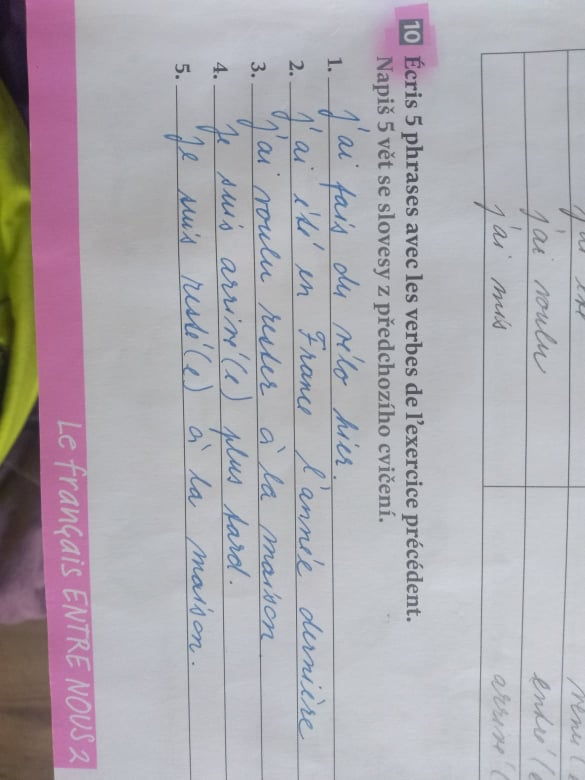 j'ai voulu
j'ai mis
10 Écris 5 phrases avec les verbes de l'exercice précédent.
Napiš 5 vět se slovesy z předchozího cvičení.
1. j'ai fais du vélo hier.
2. j'ai été en France l'année dernière
3. j'ai voulu rester à la maison.
4. je suis arrivé(e) plus tard.
5. je suis resté(e) à la maison.
Le français ENTRE NOUS 2